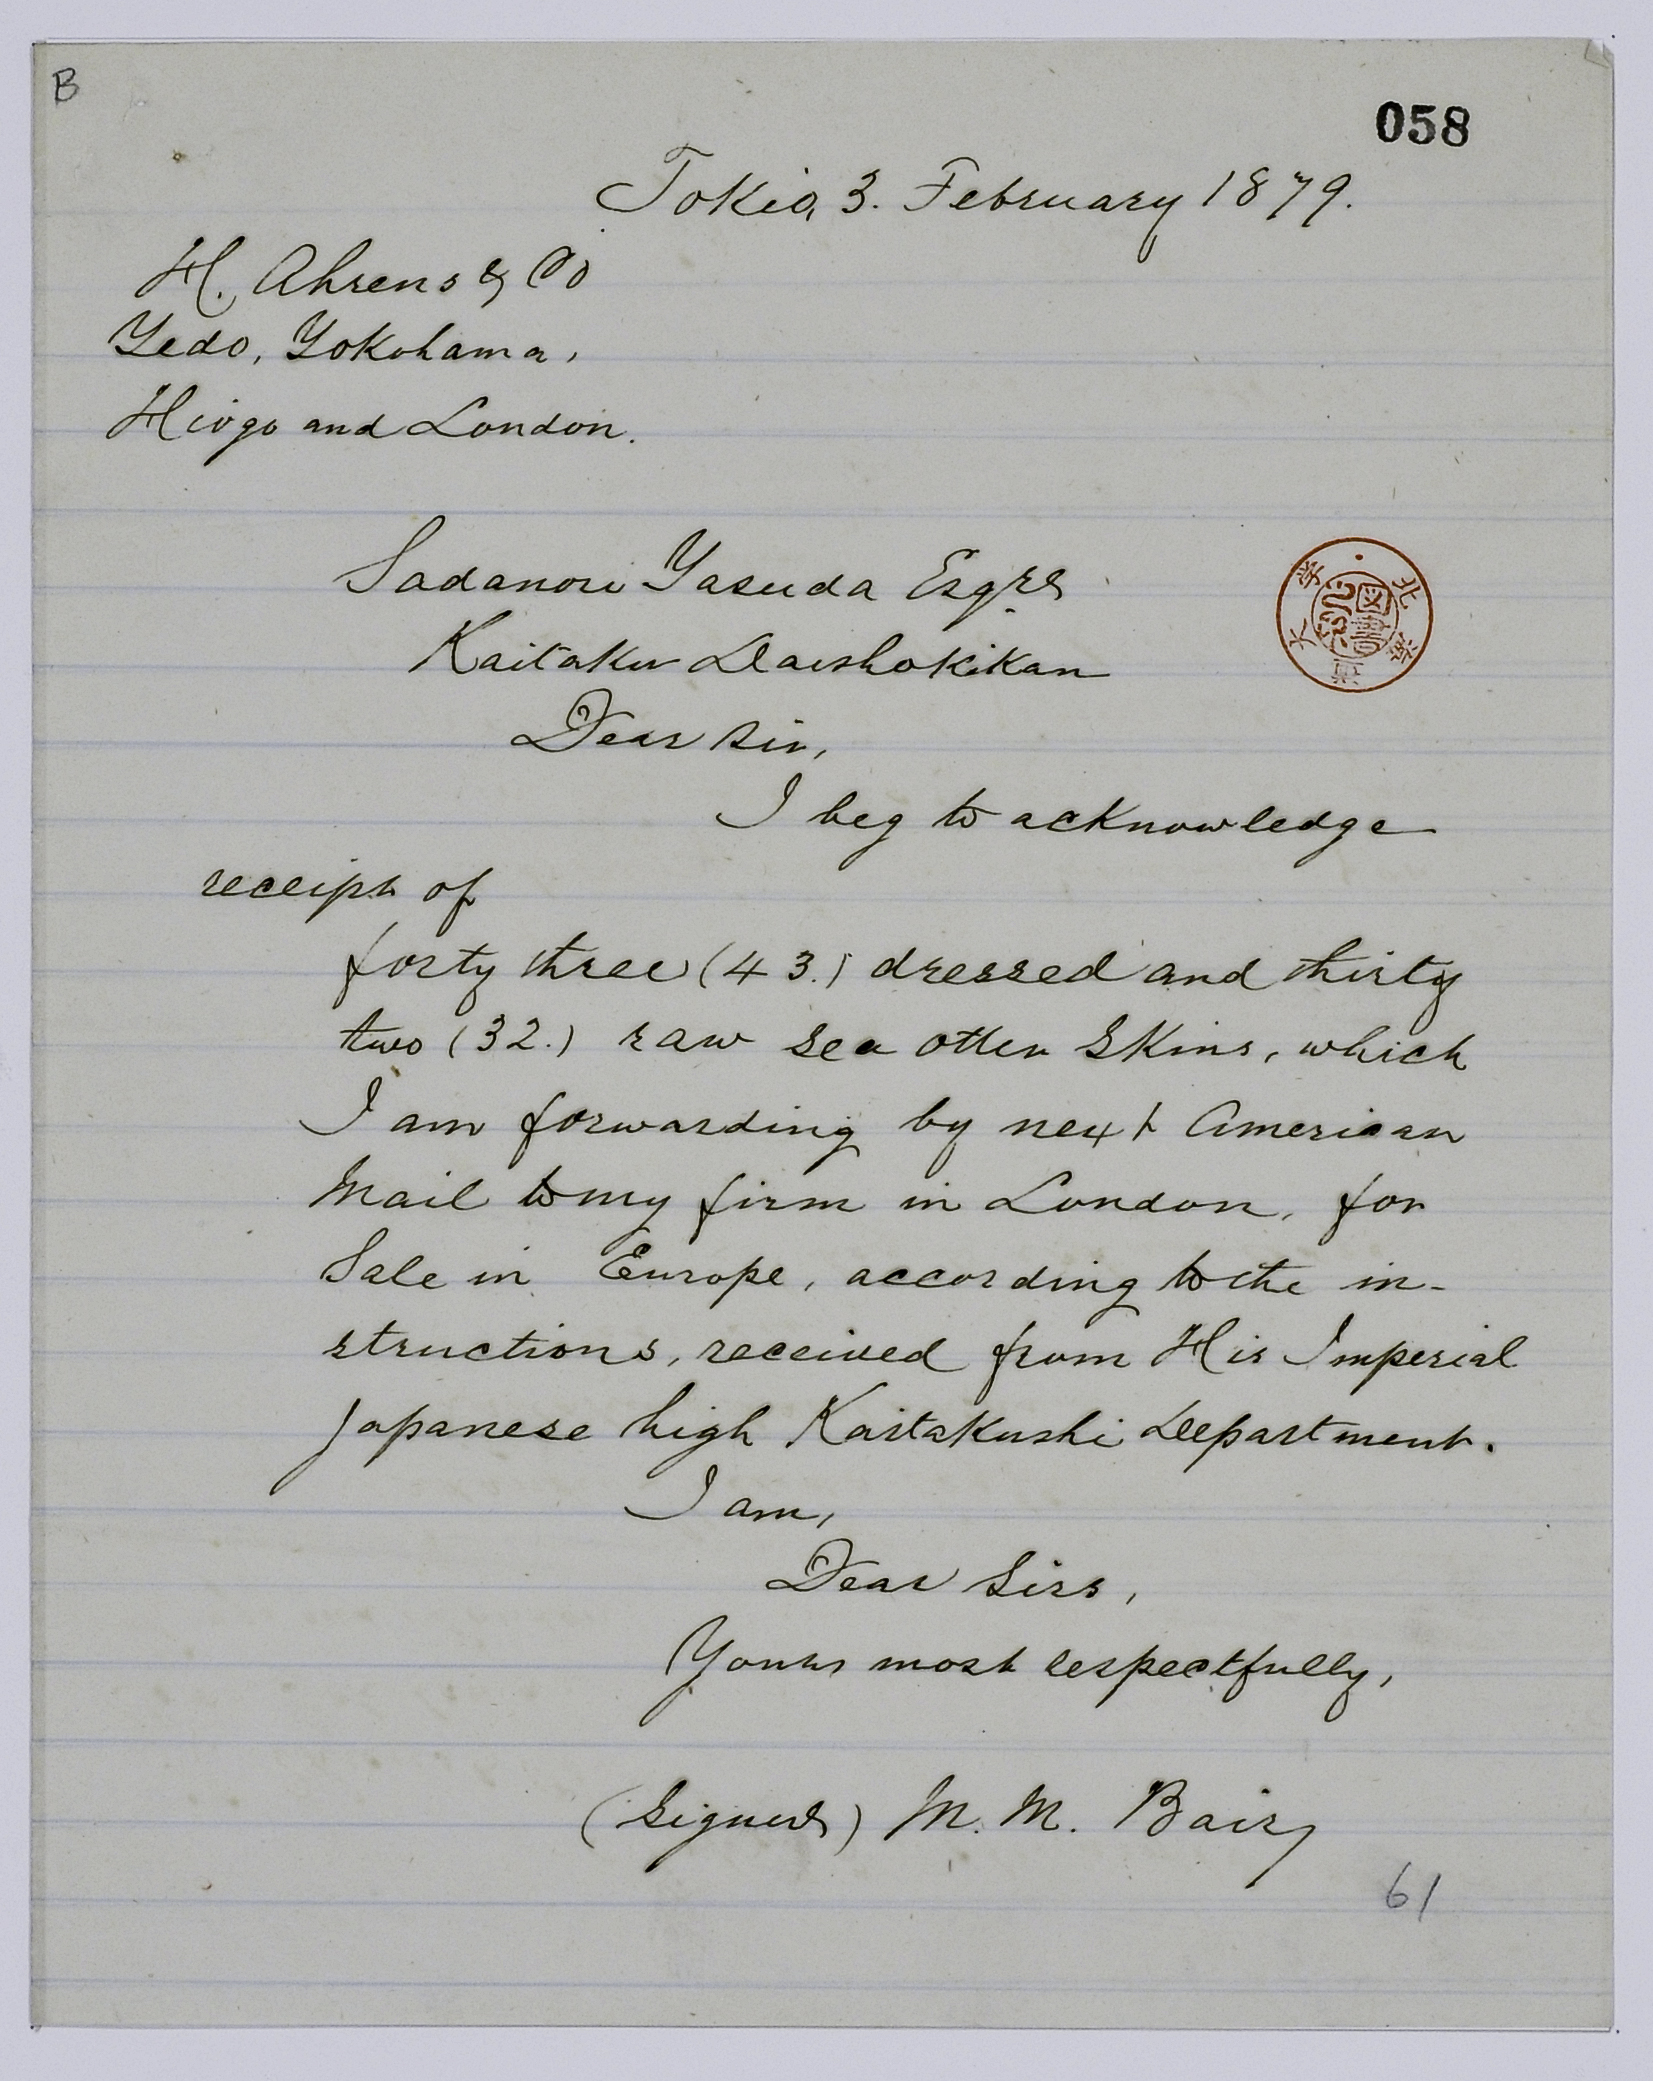 B
058
Tokio, 3. February 1879.
H. Ahrens & Co
Yedo, Yokohama,
Hiogo and London.
Sadanori Yasuda Esqre
Kaitaku Daishokikan
北海道
大学
図書
Dear Sir,
I beg to acknowledge
receipt of
forty three (43.) dressed and thirty
two (32.) raw sea otter Skins, which
I am forwarding by next American
Mail to my firm in London, for
Sale in Europe, according to the in-
structions, received from His Imperial
Japanese high Kaitakushi Department.
I am,
Dear Sirs,
Yours most respectfully,
(Signed) M. M. Bair
61